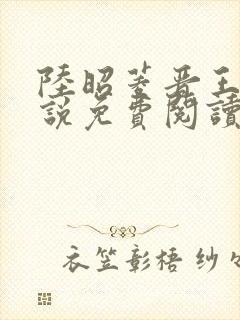 陸昭菱晋王
說免費閱讀
衣笠彰梧 纱